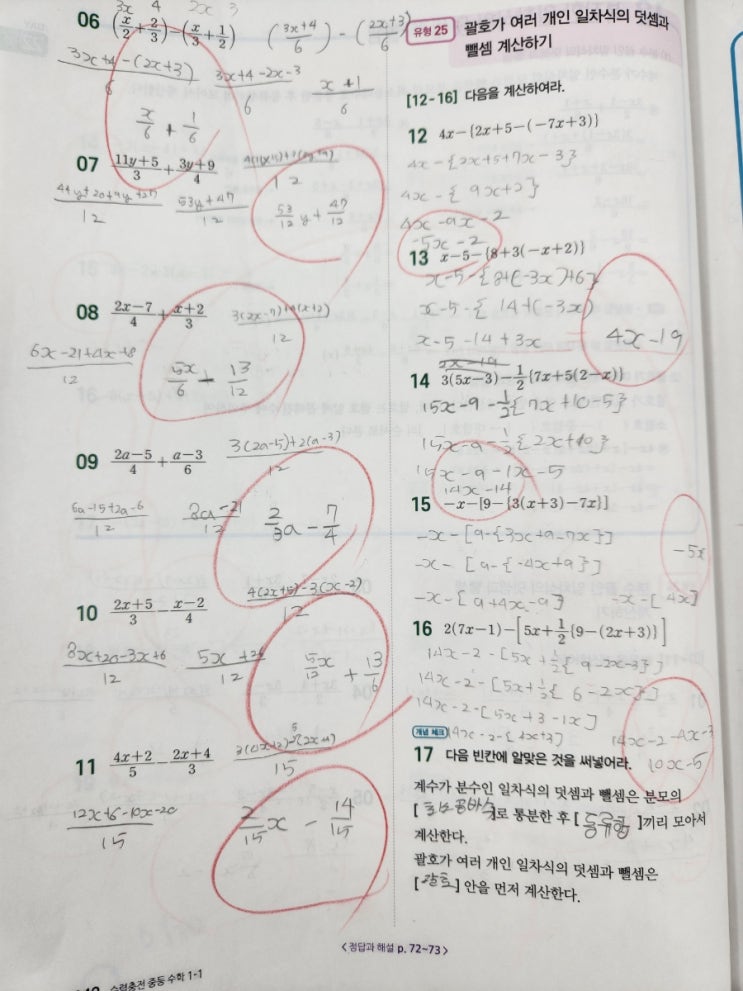 3x 4 2x 3
06 (x/2+2/3)-(x/3+1/2) (3x+4/6) - (2x+3/6)
3x+4-(2x+3)/6 3x+4-2x-3/6 x+1/6
x/6 + 1/6
07 11y+5/3+3y+9/4 4(11y+5)+3(3y+9)/12
44y+20+9y+27/12 53y+47/12 53/12 y + 47/12
08 2x-7/4+x+2/3 3(2x-7)+4(x+2)/12
6x-21+4x+8/12 5x/6 - 13/12
09 2a-5/4+a-3/6 3(2a-5)+2(a-3)/12
6a-15+2a-6/12 8a-21/12 2/3a - 7/4
10 2x+5/3-x-2/4 4(2x+5)-3(x-2)/12
8x+20-3x+6/12 5x+26/12 5x/12 + 13/6
11 4x+2/5-2x+4/3 3(4x+2)-5(2x+4)/15
12x+6-10x-20/15 2/15x - 14/15
<정답과 해설 p. 72~73>
수력충전 중등 수학 1-1
유형 25 괄호가 여러 개인 일차식의 덧셈과
뺄셈 계산하기
[12-16] 다음을 계산하여라.
12 4x-{2x+5-(-7x+3)}
4x-{2x+5+7x-3}
4x-{9x+2}
4x-9x-2
-5x-2
13 x-5-{8+3(-x+2)}
x-5-{8+(-3x)+6}
x-5-{14+(-3x)
x-5-14+3x 4x-19
14 3(5x-3)-1/2{7x+5(2-x)}
15x-9-1/2{7x+10-5}
15x-9-1/2{2x+10}
15x-9-1x-5
14x-14
15 -x-[9-{3(x+3)-7x}]
-x-[9-{3x+9-7x}]
-x-[9-{-4x+9}] -5x
-x-[9+4x-9] -x-[4x]
16 2(7x-1)-[5x+1/2{9-(2x+3)}]
14x-2-[5x+1/2{9-2x-3}]
14x-2-[5x+1/2{6-2x}]
14x-2-[5x+3-1x]
개념 체크 14x-2-[4x+3] 14x-2-4x-3
17 다음 빈칸에 알맞은 것을 써넣어라. 10x-5
계수가 분수인 일차식의 덧셈과 뺄셈은 분모의
[최소공배수]로 통분한 후 [동류항]끼리 모아서
계산한다.
괄호가 여러 개인 일차식의 덧셈과 뺄셈은
[괄호] 안을 먼저 계산한다.